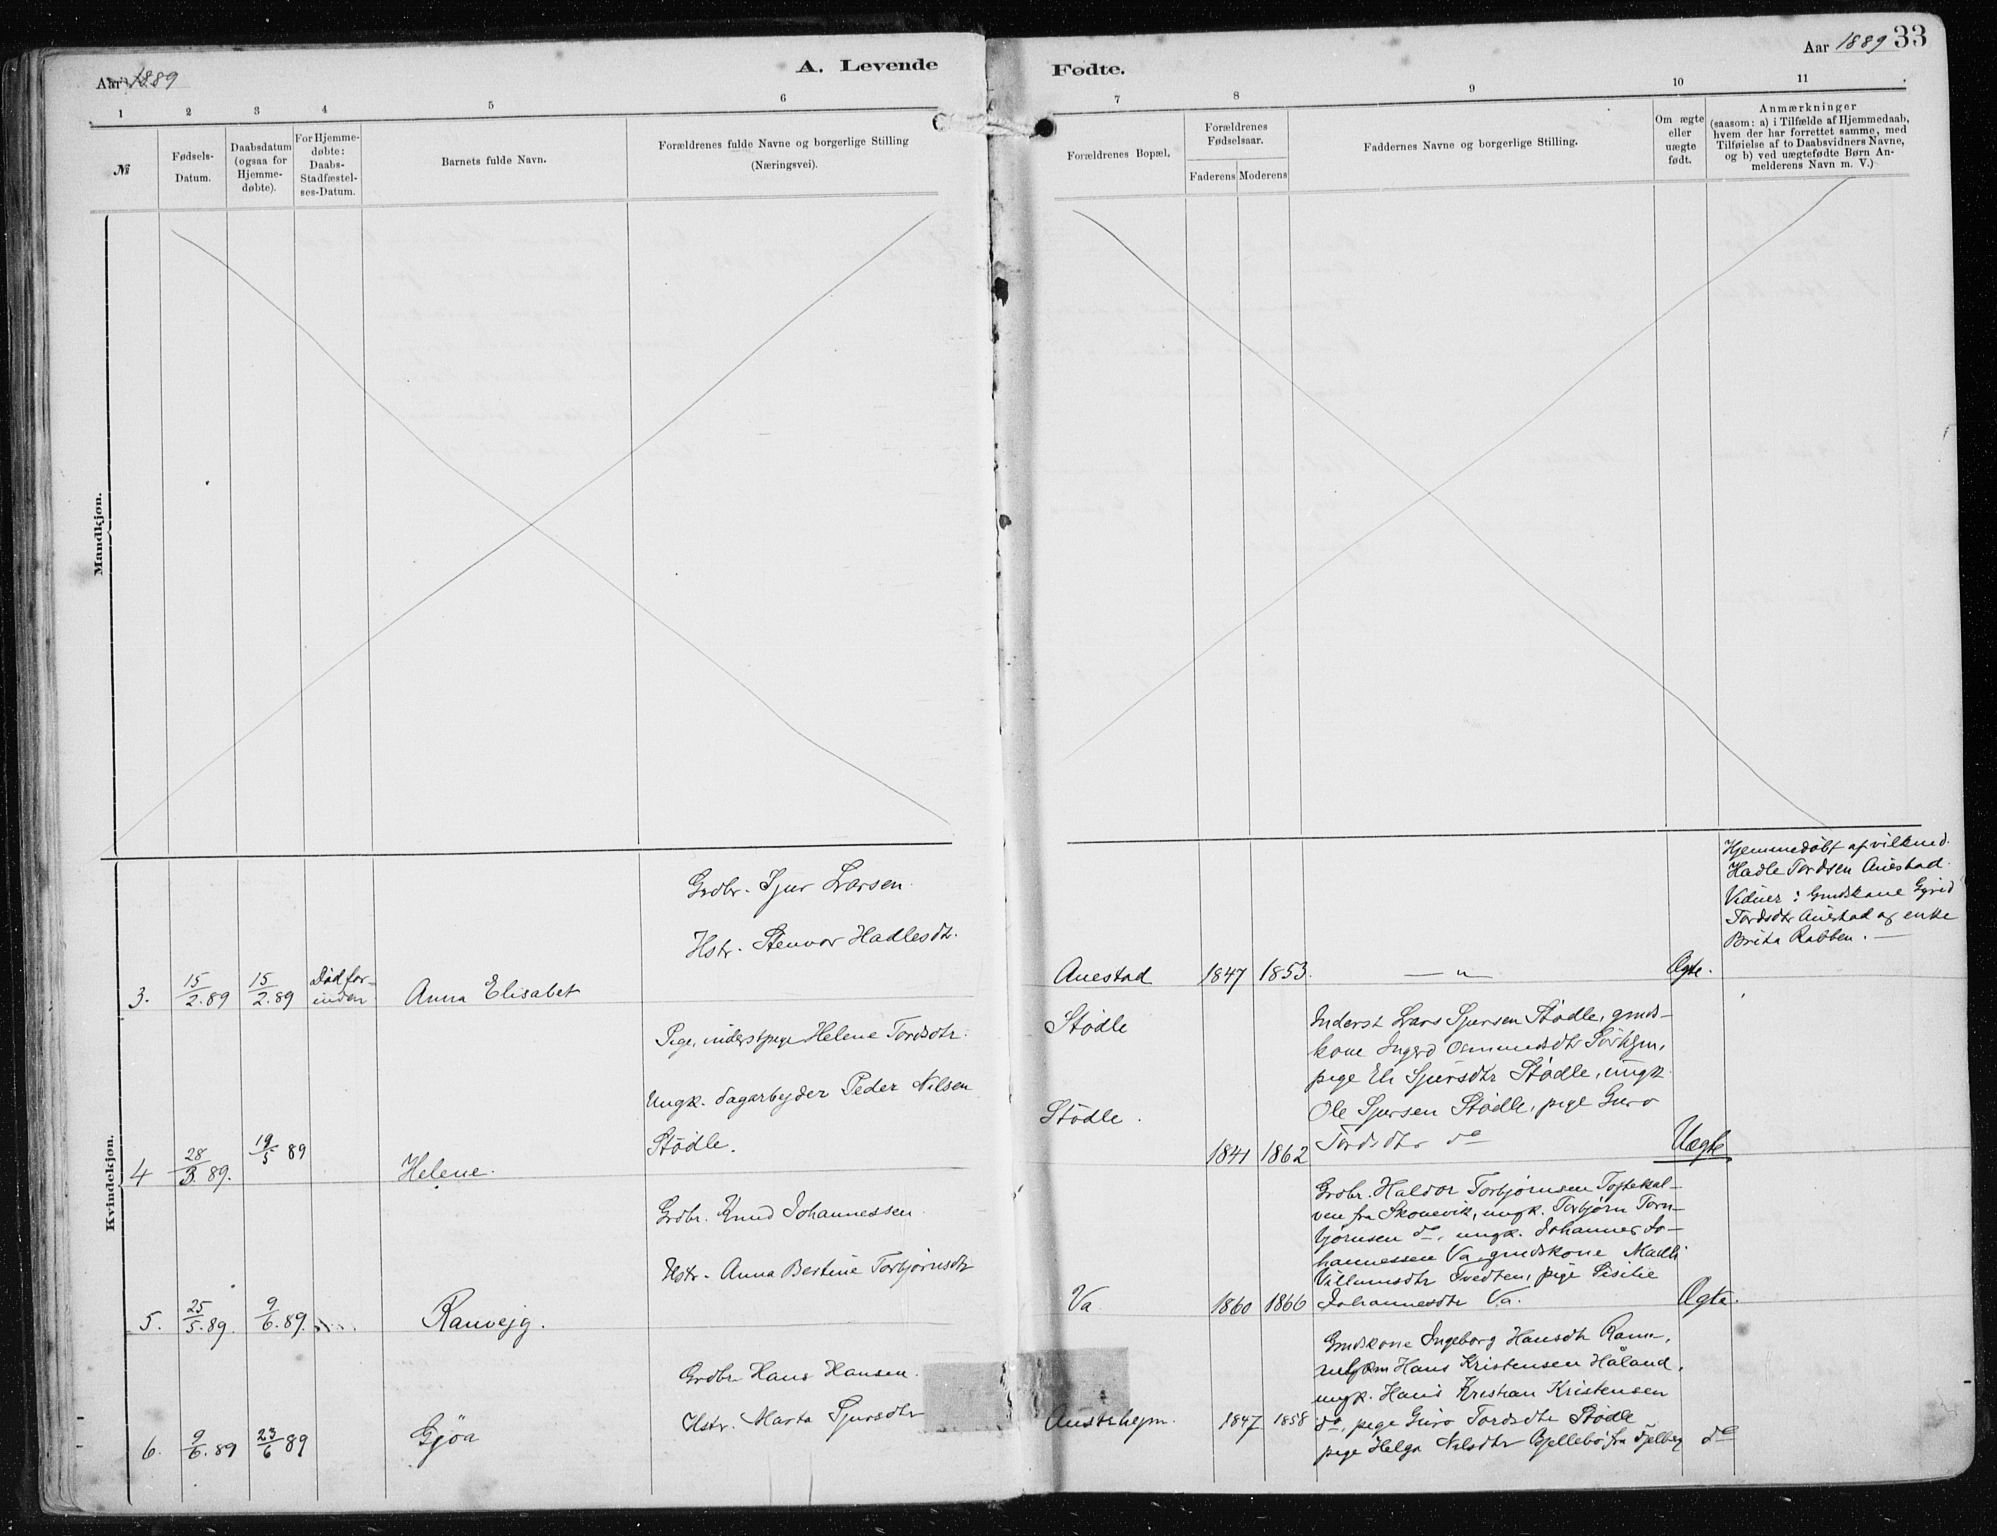 Aar 1889
A. Levende
Fødte.
Aar 1889
33
1 2 3 4 5 6 7 8 9 10 11
№
Fødsels-
Datum.
Daabsdatum
(ogsaa for
Hjemme-
døbte).
For Hjemme-
døbte:
Daabs-
Stadfæstel-
ses-Datum.
Barnets fulde Navn.
Forældrenes fulde Navne og borgerlige Stilling
(Næringsvei).
Forældrenes Bopæl.
Forældrenes
Fødselsaar.
Faderens Moderens
Faddernes Navne og borgerlige Stilling.
Om ægte
eller
uægte
født.
Anmærkninger
(saasom: a) i Tilfælde af Hjemmedaab,
hvem der har forrettet samme, med
Tilføielse af to Daabsvidners Navne,
og b) ved uægtefødte Børn An-
melderens Navn m. V.)
Mandkjøn.
Kvindekjøn.
3.
15/2.89
15/2.89
Død for-
inden
Anna Elisabet
Grdbr. Sjur Larsen.
Hstr. Stenvor Hadlesdtr.
Auestad
1847
1853.
— " —
Ægte.
Hjemmedøbt af vilkmd.
Hadle Tordsen Auestad.
Vidner: Gmdskone Gyrid
Tordsdtr Auestad og enke
Brita Rabben. —
4
28/3.89.
19/5 89
Helene.
Pige, inderstpige Helene Tordsdtr.
Ungk. dagarbejder Peder Nilsen
Stødle.
Stødle
Stødle.
1841
1862
Inderst Lars Sjursen Stødle, gmds-
kone Ingerd Osmundsdtr
pige Eli Sjursdtr Stødle, ungk.
Ole Sjursen Stødle, pige Guro
Tordsdtr do
Uægte
5.
25/5.89.
9/6.89.
Ranvejg.
Grdbr. Knud Johannessen.
Hstr. Anna Bertine Torbjørnsdtr
Va
1860
1866
Grdbr. Haldor Torbjørnsen Toftekal-
ven fra Skonevik, ungk. Torbjørn Torn-
bjørnsen do, ungk. Johannes Jo-
hannessen Va, gmdskone Madli
Villumsdtr Tvedten, pige Sisilie
Johannesdtr Va.
Ægte.
6.
9/6.89
23/6 89
Gjøa
Grdbr. Hans Hansen.
Hstr. Marta Sjursdtr
Austrhejm.
1847
1858
Gmdskone Ingeborg Hansdtr
Hans Kristensen Håland,
ungk. Hans Kristian Kristensen
do, pige Guro Tordsdtr Stødle
pige Helga Nilsdtr Bjellebø fra Fjelberg
do